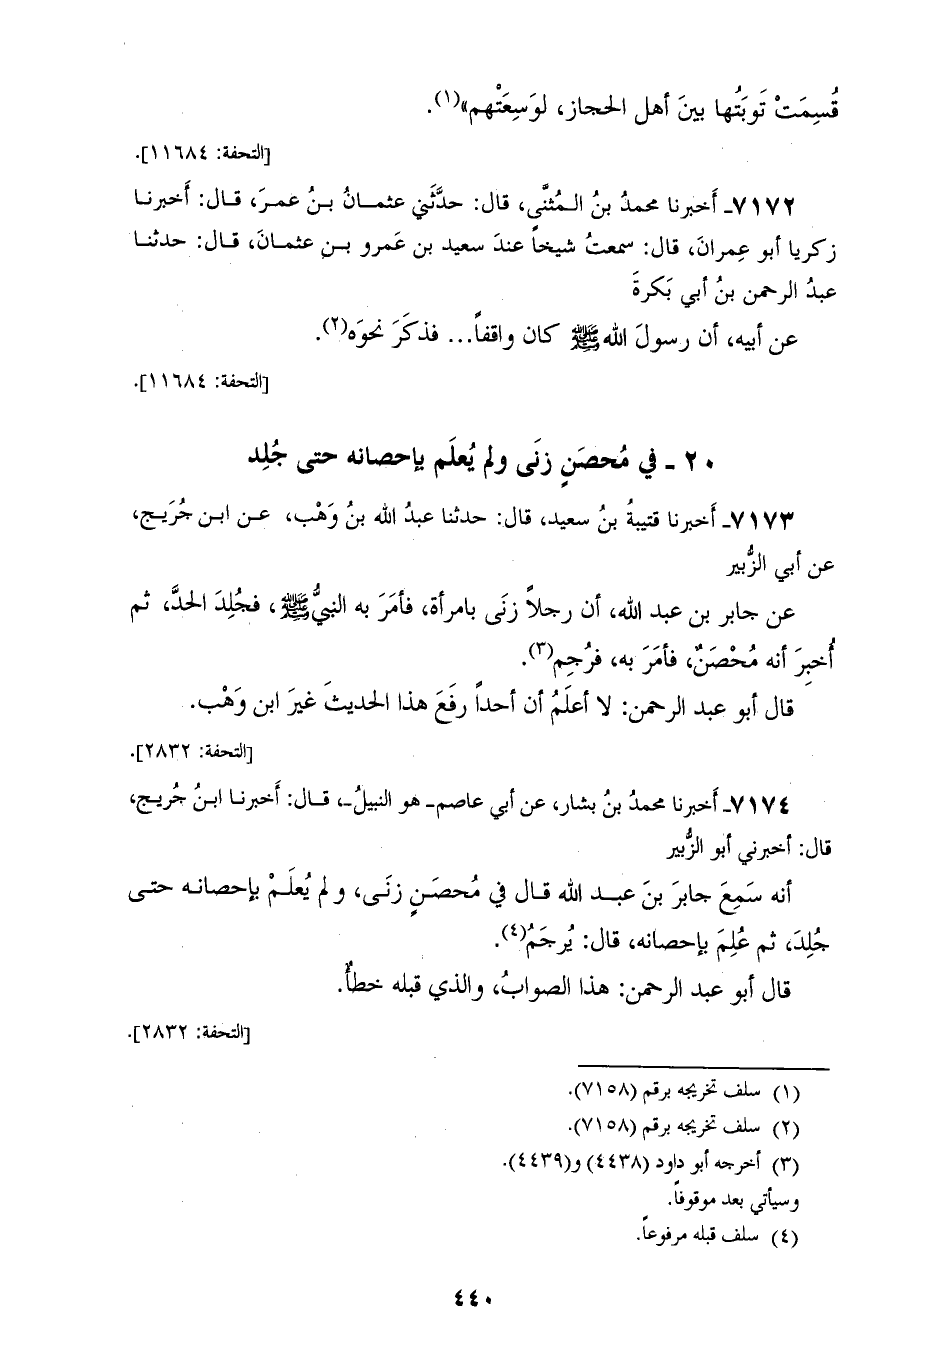 قُسِمَتْ تَوبَتُها بينَ أهل الحجاز، لوَسِعَتْهم»(١).
[التحفة: ١١٦٨٤].
٧١٧٢ـ أخبرنا محمدُ بنُ الـمُثنَّى، قال: حدَّثَني عثمـانُ بـنُ عمرَ، قـال: أَخبرنـا
زكريا أبو عِمرانَ، قال: سمعتُ شيخاً عندَ سعيد بن عَمرو بـنِ عثمـانَ، قـال: حدثنـا
عبدُ الرحمن بنُ أبي بَكرةَ
عن أبيه، أن رسولَ اللهﷺ كان واقفاً... فذكَرَ نحوَه(٢).
[التحفة: ١١٦٨٤].
٢٠ - في مُحصَنٍ زنَى ولم يُعلَم بإحصانه حتى جُلِد
٧١٧٣ـ أَخبرنا قتيبةُ بنُ سعيد، قال: حدثنا عبدُ الله بنُ وَهْب، عـن ابـن جُرَيـج،
عن أبي الزُّبير
عن جابر بن عبد الله، أن رجلاً زنَى بامرأة، فأمَرَ به النبيُّﷺ، فجُلِدَ الحدَّ، ثم
أُخبِرَ أنه مُحْصَنٌ، فأمَرَ به، فرُجِم(٣).
قال أبو عبد الرحمن: لا أعلَمُ أن أحداً رفَعَ هذا الحديثَ غيرَ ابن وَهْب.
[التحفة: ٢٨٣٢].
٧١٧٤ـ أَخبرنا محمدُ بنُ بشار، عن أبي عاصم- هو النبيلُ-، قـال: أَخبرنـا ابنُ جُريج،
قال: أخبرني أبو الزُّبير
أنه سَمِعَ جابرَ بنَ عبـد الله قـال في مُحصَـنٍ زنَـى، ولم يُعلَـمْ بإحصانـه حتـى
جُلِدَ، ثم عُلِمَ بإحصانه، قال: يُرجَمُ(٤).
قال أبو عبد الرحمن: هذا الصوابُ، والذي قبله خطأٌ.
[التحفة: ٢٨٣٢].
(١) سلف تخريجه برقم (٧١٥٨).
(٢) سلف تخريجه برقم (٧١٥٨).
(٣) أخرجه أبو داود (٤٤٣٨) و(٤٤٣٩).
وسيأتي بعد موقوفاً.
(٤) سلف قبله مرفوعاً.
٤٤٠